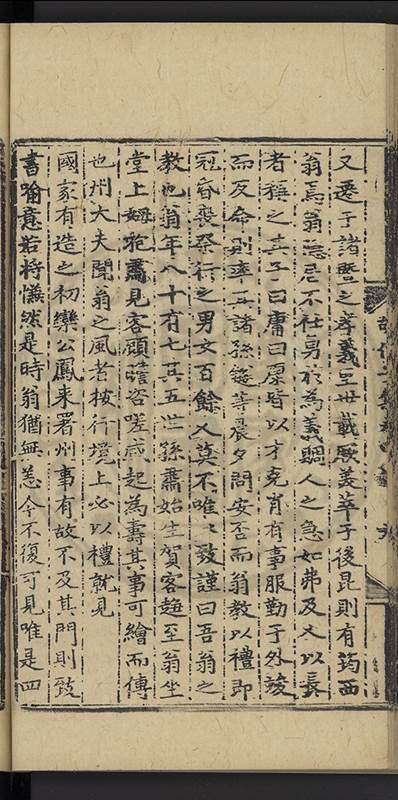 又遷于諸暨之孝義里世載厥美萃于後昆則有筠西
翁焉翁隱居不仕勇於為義賙人之急如弗及人以長
者稱之其子曰庸曰原皆以才克肖有事服勤于外竣
而反命則率五諸孫鎚等晨夕問安否而翁教以禮即
冠昏喪祭行之男女百餘人莫不唯〻致謹曰吾翁之
教也翁年八十有七其五世孫肅始生賀客趨至翁坐
堂上姆抱肅見客顧瞻咨嗟咸起為壽其事可繪而傳
也州大夫聞翁之風者按行境上必以禮就見
國家有造之初欒公鳳來署州事有故不及其門則致
書喻意若將慊然是時翁猶無恙今不復可見唯是四